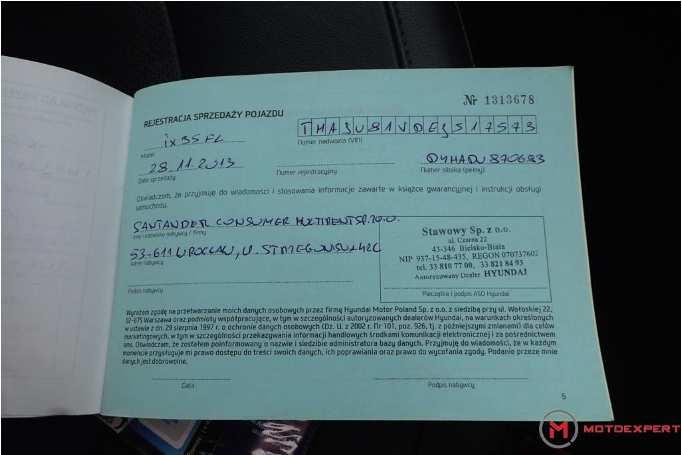 Nr 1313678
REJESTRACJA SPRZEDAŻY POJAZDU
ix35 FL
Model
TMAJU81VDEJ517573
Numer nadwozia (VIN)
28.11.2013
Data sprzedaży
Numer rejestracyjny
D4HADU870683
Numer silnika (pełny)
Oświadczam, że przyjmuję do wiadomości i stosowania informacje zawarte w książce gwarancyjnej i instrukcji obsługi
samochodu.
SANTANDER CONSUMER MULTIRENT SP. ZO.O.
Imię i nazwisko nabywcy / firmy
53-611 WROCŁAW, UL. STRZEGOMSKA 42C
Adres nabywcy
Podpis nabywcy
Stawowy Sp. z o.o.
ul. Czarna 22
43-346 Bielsko-Biała
NIP 937-15-48-435, REGON 070737602
tel. 33 810 77 00, 33 821 84 93
Autoryzowany Dealer HYUNDAI
Pieczątka i podpis ASO Hyundai
Wyrażam zgodę na przetwarzanie moich danych osobowych przez firmę Hyundai Motor Poland Sp. z o.o. z siedzibą przy ul. Wołoskiej 22,
02-675 Warszawa oraz podmioty współpracujące, w tym w szczególności autoryzowanych dealerów Hyundai, na warunkach określonych
w ustawie z dn. 29 sierpnia 1997 r. o ochronie danych osobowych (Dz. U. z 2002 r. Nr 101, poz. 926, tj. z późniejszymi zmianami) dla celów
marketingowych, w tym w szczególności przekazywania informacji handlowych środkami komunikacji elektronicznej i za pośrednictwem
sms. Oświadczam, że zostałem poinformowany o nazwie i siedzibie administratora bazy danych. Przyjmuję do wiadomości, że w każdym
momencie przysługuje mi prawo dostępu do treści swoich danych, ich poprawiania oraz prawo do wycofania zgody. Podanie przeze mnie
danych jest dobrowolne.
Data
Podpis nabywcy
5
MOTOEXPERT